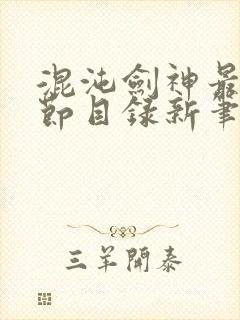 混沌劍神最
節目錄新筆
三羊開泰